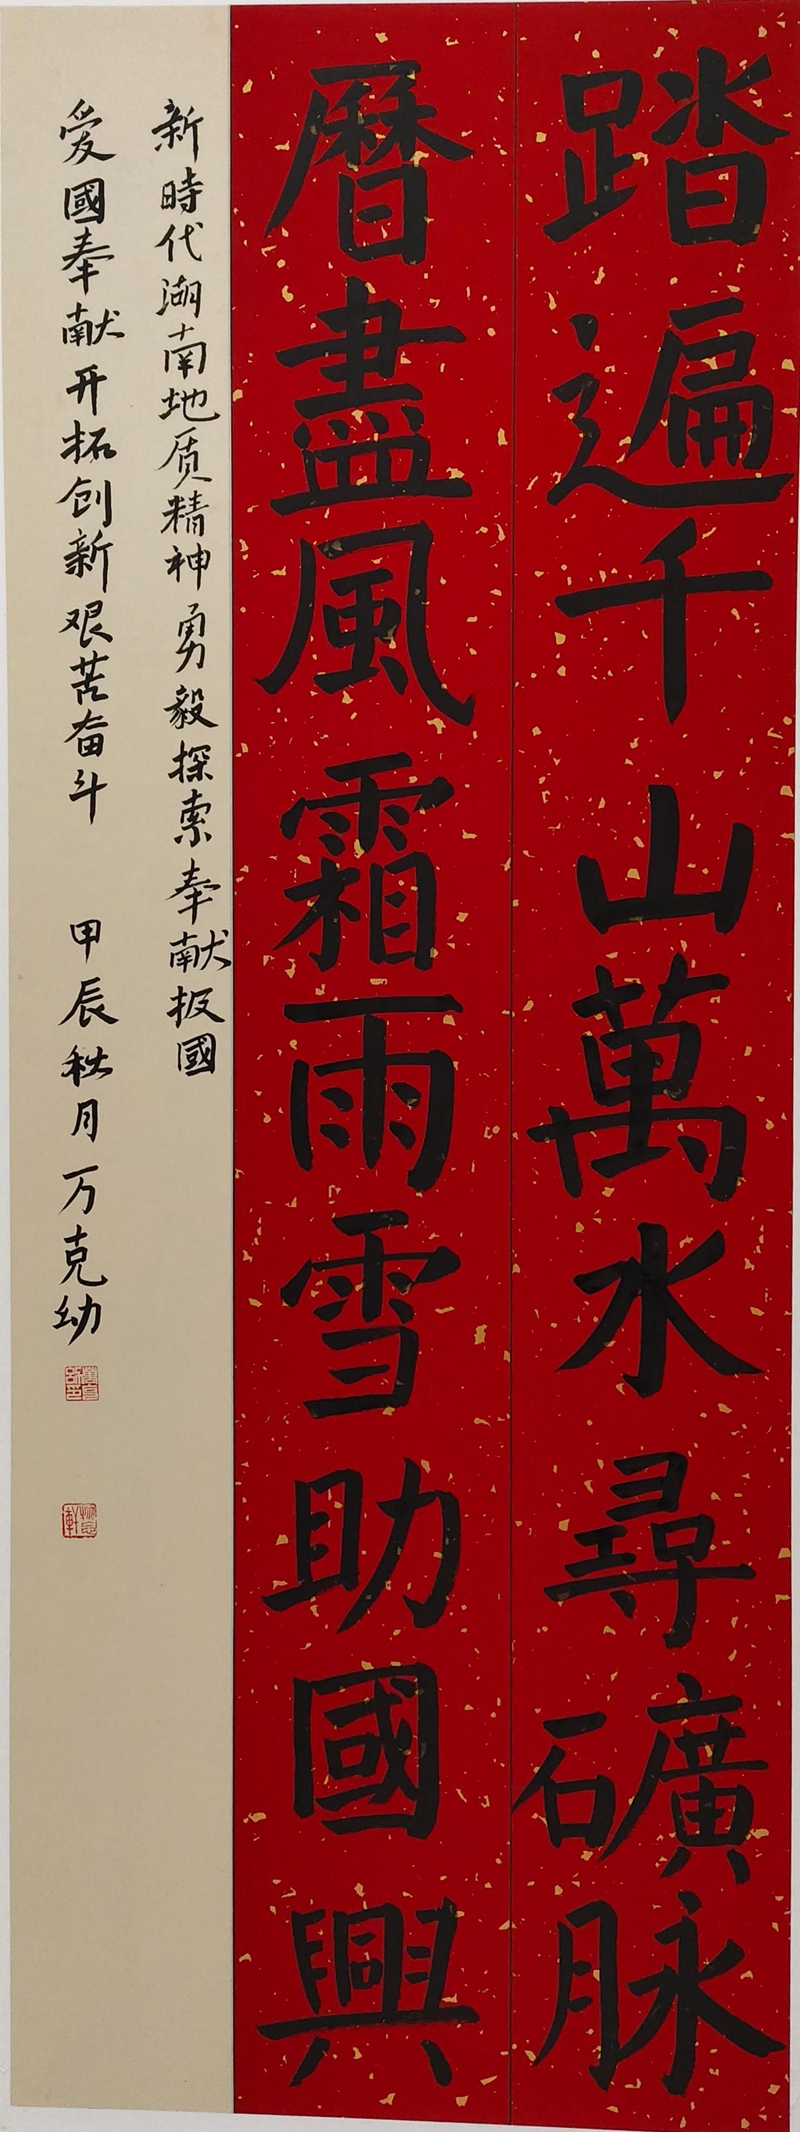 踏遍千山萬水尋礦脉
曆盡風霜雨雪助國興
新時代湖南地质精神勇毅探索奉献报國
爱國奉献开拓创新艰苦奋斗 甲辰秋月万克幼